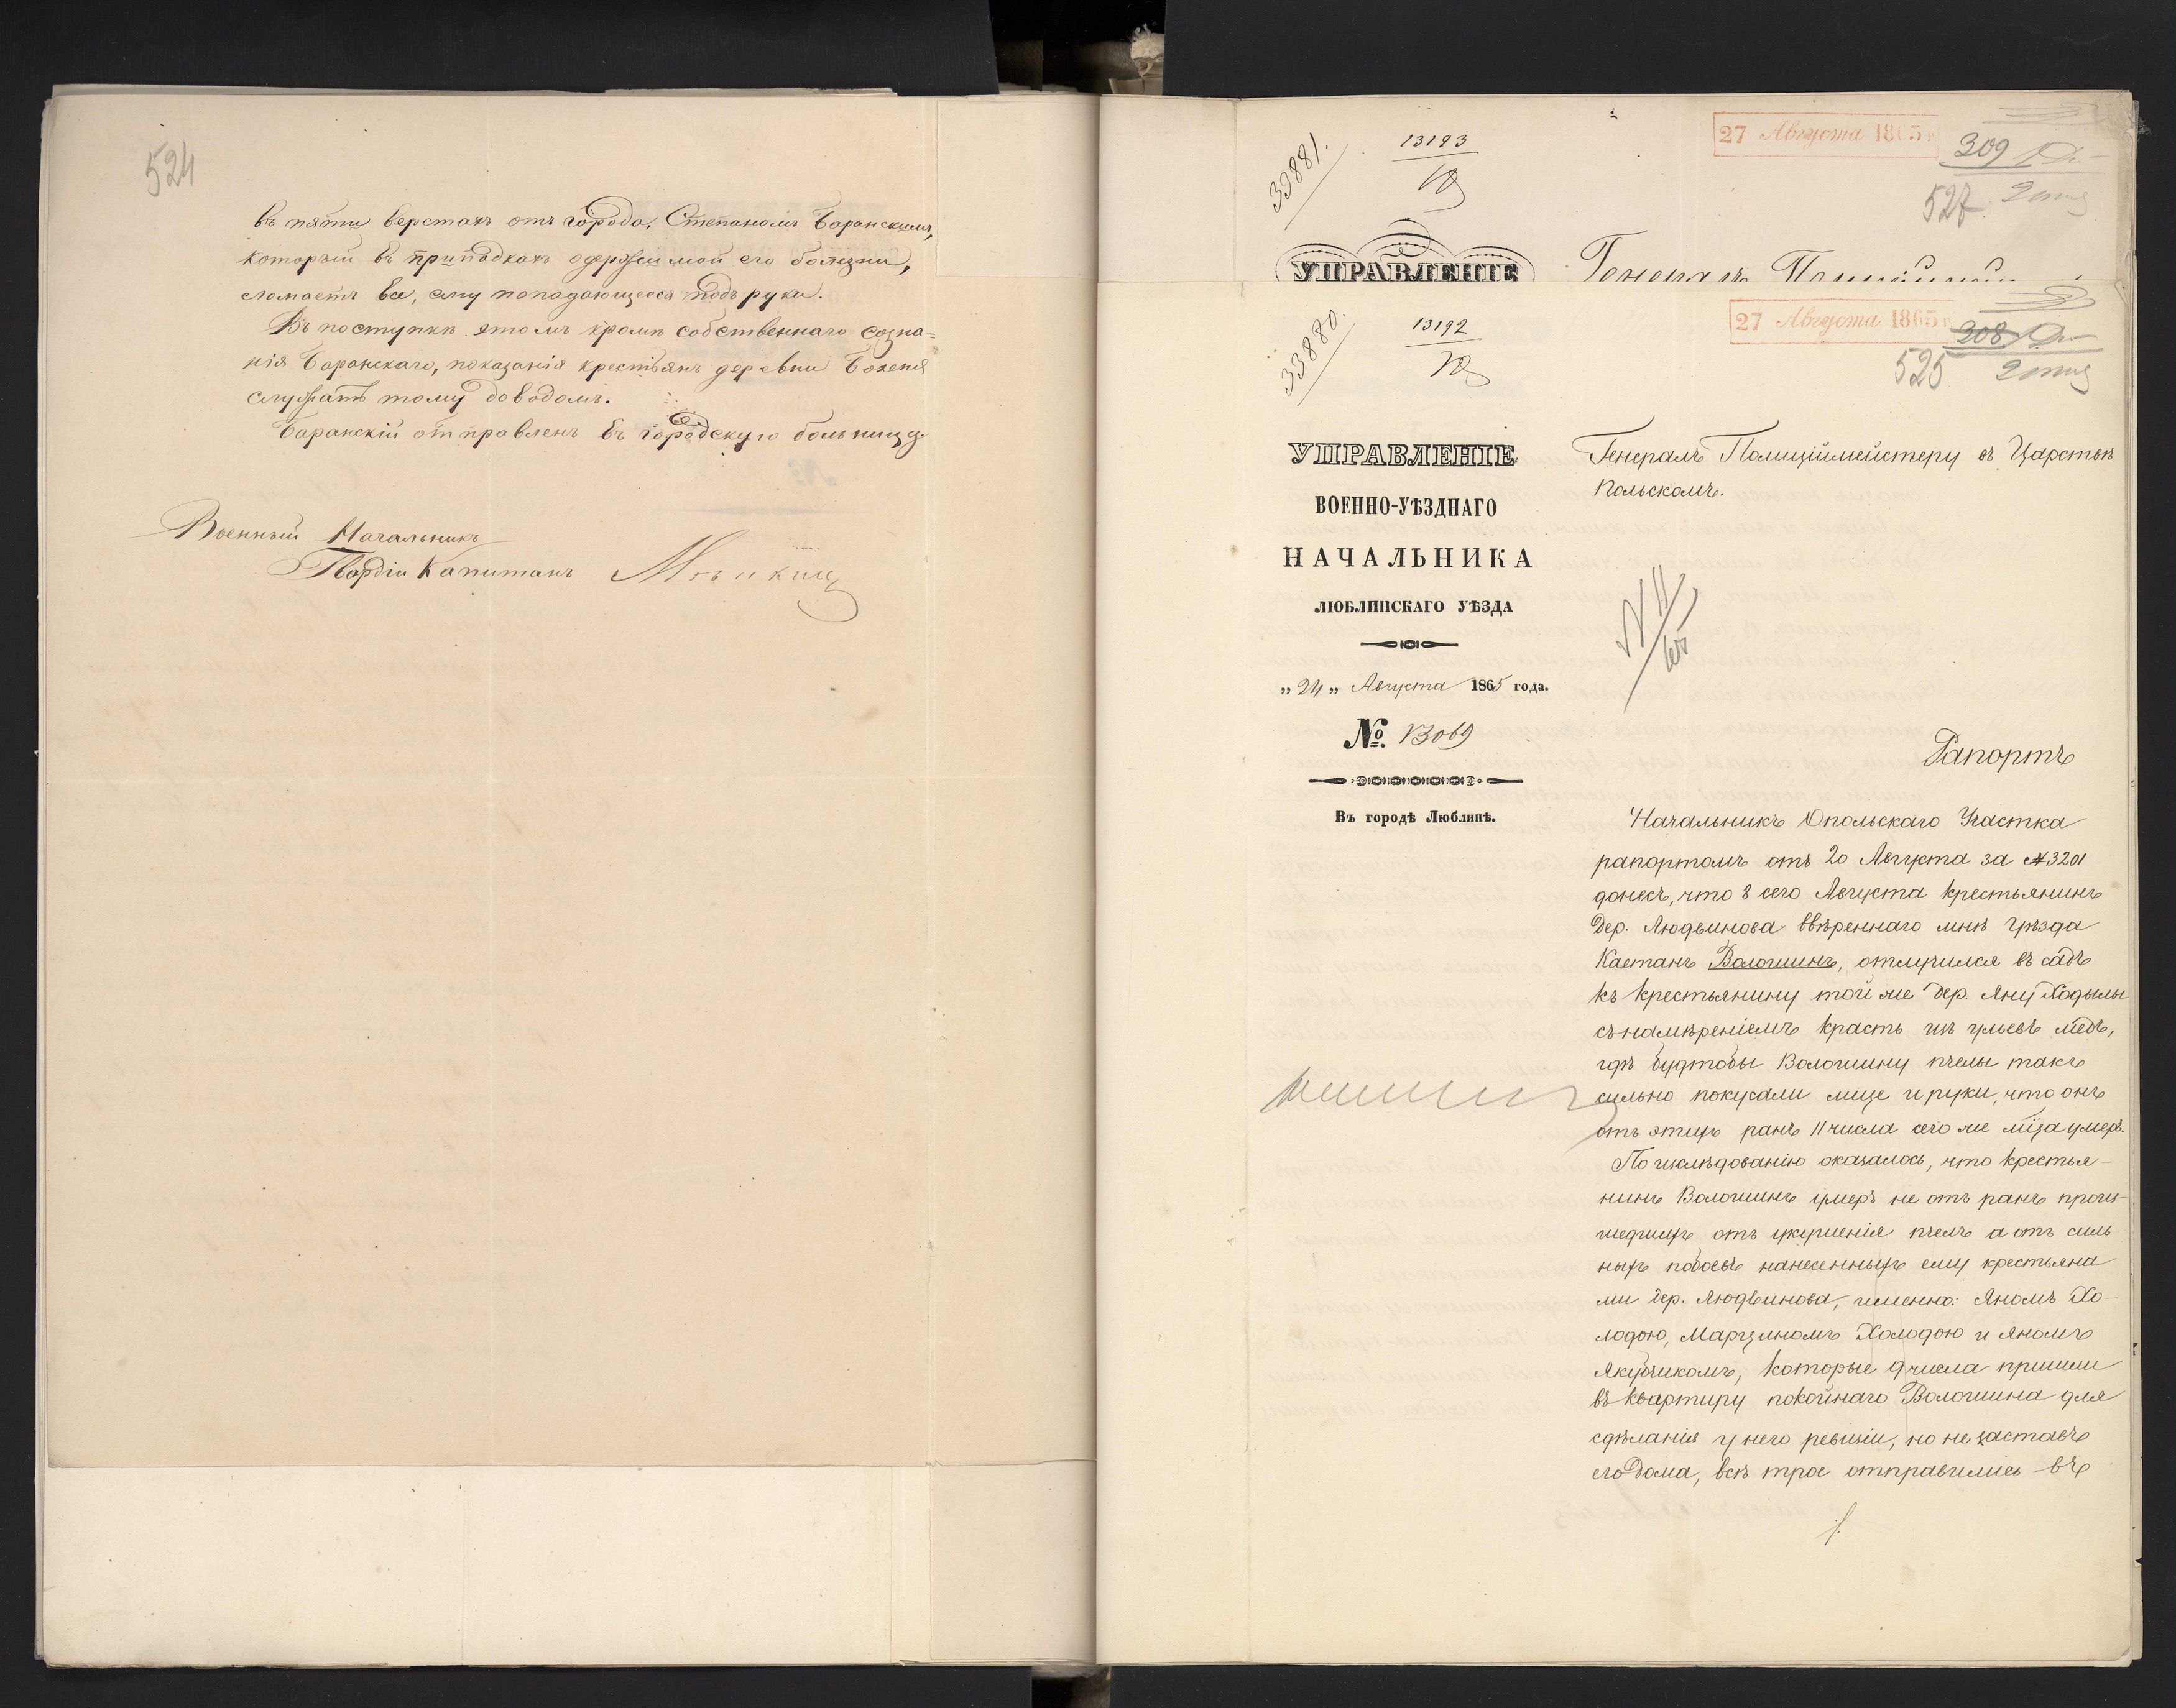 524
въ пяти верстахъ отъ города, Степаномъ Баранскимъ,
который въ припадкахъ одержимой его болѣзни,
сломаетъ все, ему попадающееся подъ руки.
Въ поступкѣ этомъ кромѣ собственнаго созна=
нія Баранскаго, показанія крестьянъ деревни
служатъ тому доводомъ.
Баранскій отправленъ въ городскую больницу.
Военный Начальникъ
Гвардіи Капитанъ
33881.
13193
27 Августа 1865 г
309
527
УПРАВЛЕНІЕ
Генералъ
33880.
13192
27 Августа 1865 г
308
525
УПРАВЛЕНІЕ
ВОЕННО-УѢЗДНАГО
НАЧАЛЬНИКА
ЛЮБЛИНСКАГО УѢЗДА
„ 24 „ Августа 1865 года.
№. 13069
Въ городѣ Люблинѣ.
Генералъ Полиціймейстеру въ Царствѣ
Польскомъ.
Рапортъ
Начальникъ Опольскаго Участка
рапортомъ отъ 20 Августа за № 3201
донесъ, что 8 сего Августа крестьянинъ
дер. Людвинова ввѣреннаго мнѣ Уѣзда
Каетанъ Волошинъ, отлучился въ садъ
къ крестьянину той же дер. Яну Ходылы
съ намѣреніемъ красть изъ ульевъ медъ,
гдѣ будтобы Волошину пчелы такъ
сильно покусали лице и руки, что онъ
отъ этихъ ранъ 11 числа сего же мѣ̃ца умеръ.
По изслѣдованію оказалось, что крестья-
нинъ Волошинъ умеръ не отъ ранъ проис-
шедшихъ отъ укушенія пчелъ а отъ силь
ныхъ побоевъ нанесенныхъ ему крестьяна
ми дер. Людвинова, именно: Яномъ Хо-
лодою, Марциномъ Холодою и Яномъ
Якубчикомъ, которые 9 числа пришли
въ квартиру покойнаго Волошина для
сдѣланія у него ревизіи, но не заставъ
его дома, всѣ трое отправились въ